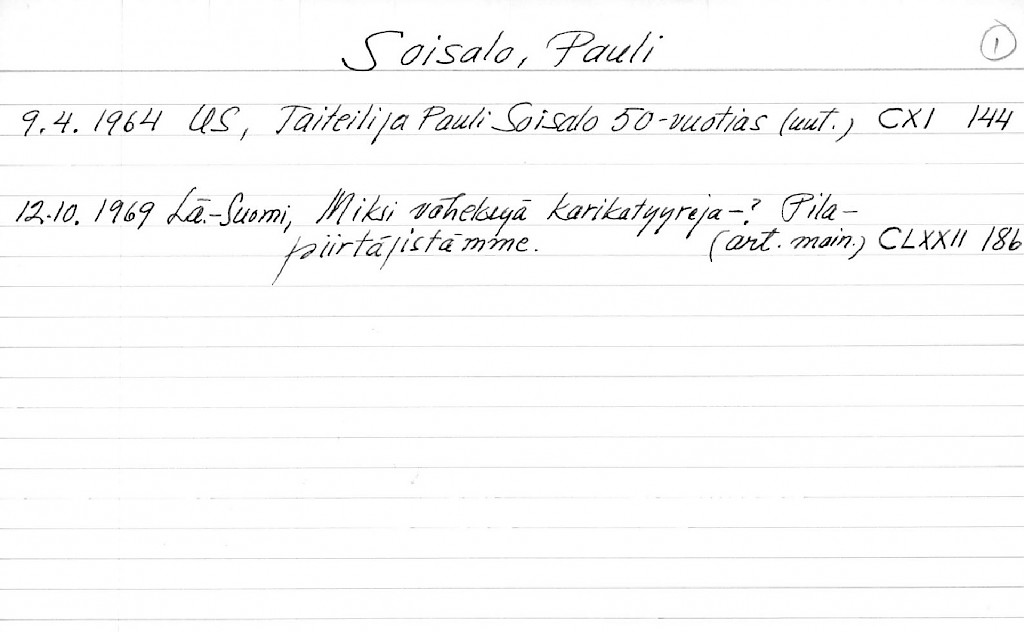 Soisalo, Pauli
1
9.4. 1964 US, Taiteilija Pauli Soisalo 50-vuotias (uut.) CXI 144
12.10. 1969 Lä.-Suomi, Miksi väheksyä karikatyyrejä-? Pila-
piirtäjistämme. (art. main.) CLXXII 186